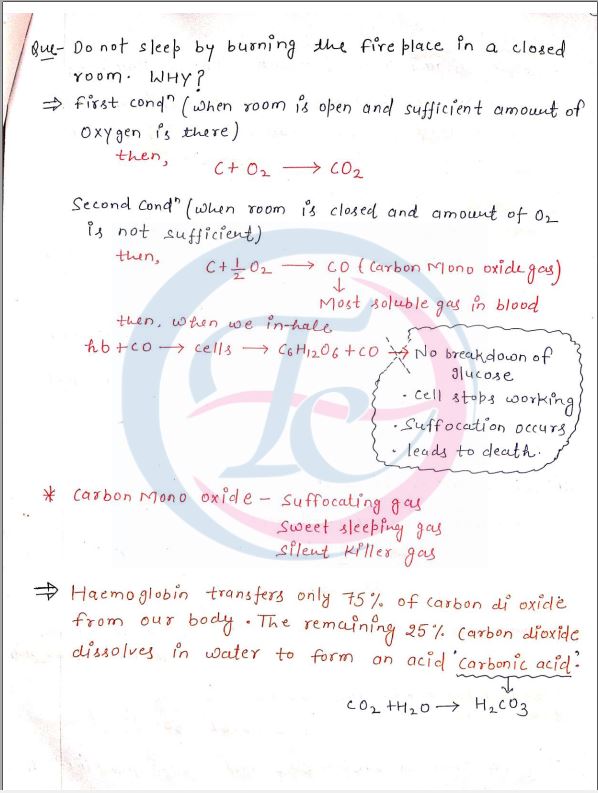 Que- Do not sleep by burning the fire place in a closed
room. WHY?
⇒ first condⁿ (when room is open and sufficient amount of
Oxygen is there)
then,
C + O₂ ⟶ CO₂
Second Condⁿ (when room is closed and amount of O₂
is not sufficient)
then,
C + ½ O₂ ⟶ CO (Carbon Mono oxide gas)
↓
Most soluble gas in blood
then, when we in-hale
hb + CO ⟶ cells ⟶ C₆H₁₂O₆ + CO ⟶ No breakdown of
glucose
· Cell stops working
· Suffocation occurs
· leads to death.
* Carbon Mono oxide - Suffocating gas
Sweet sleeping gas
Silent Killer gas
⇒ Haemoglobin transfers only 75% of carbon di oxide
from our body. The remaining 25% Carbon dioxide
dissolves in water to form an acid 'carbonic acid'.
↓
CO₂ + H₂O ⟶ H₂CO₃
TC